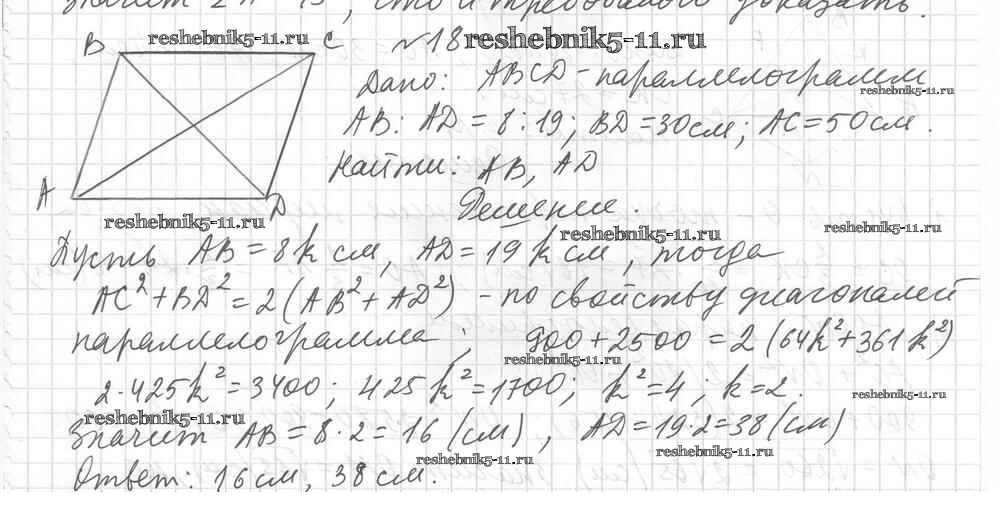 значит 2 , что и требовалось доказать.
B reshebnik5-11.ru C №18 reshebnik5-11.ru
Дано: ABCD - параллелограмм
reshebnik5-11.ru
AB : AD = 8 : 19; BD = 30 см; AC = 50 см.
Найти: AB, AD
A D
reshebnik5-11.ru
Решение.
reshebnik5-11.ru reshebnik5-11.ru
Пусть AB = 8k см, AD = 19k см, тогда
AC² + BD² = 2(AB² + AD²) - по свойству диагоналей
параллелограмма; 900 + 2500 = 2(64k² + 361k²)
reshebnik5-11.ru
2·425k² = 3400; 425k² = 1700; k² = 4; k = 2.
reshebnik5-11.ru
reshebnik5-11.ru
Значит AB = 8·2 = 16 (см), AD = 19·2 = 38 (см)
reshebnik5-11.ru reshebnik5-11.ru
Ответ: 16 см, 38 см.